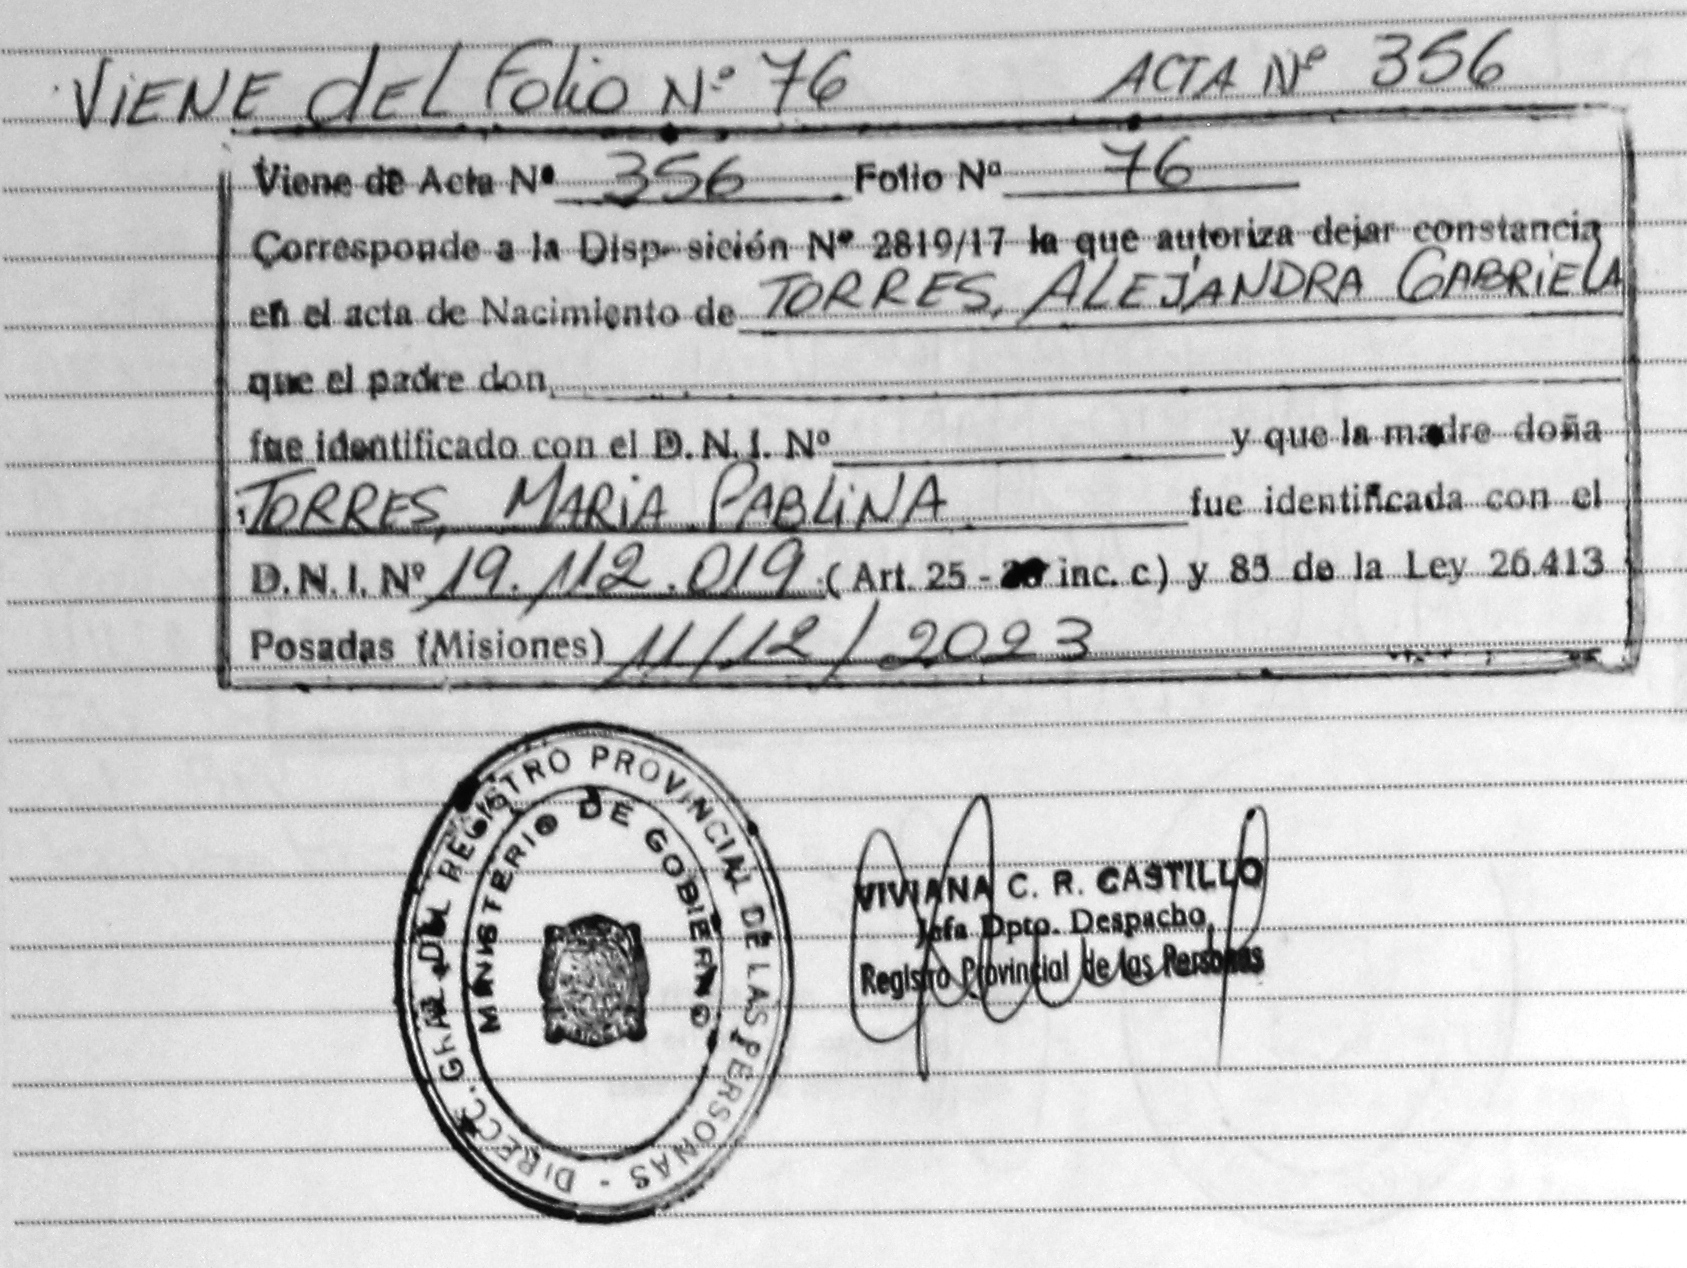 VIENE DEL FOLIO Nº 76 ACTA Nº 356
Viene de Acta Nº 356 Folio Nº 76
Corresponde a la Disp sición Nº 2819/17 la que autoriza dejar constancia
en el acta de Nacimiento de TORRES, ALEJANDRA GABRIELA
que el padre don
fue identificado con el D.N.I. Nº y que la madre doña
TORRES, MARIA PABLINA fue identificada con el
D.N.I. Nº 19.112.019 (Art. 25 - inc. c) y 85 de la Ley 26.413
Posadas (Misiones) 11/12/2023
DIRECC. GRAL. DEL REGISTRO PROVINCIAL DE LAS PERSONAS -
MINISTERIO DE GOBIERNO
VIVIANA C. R. CASTILLO
Jefa Dpto. Despacho
Registro Provincial de las Personas